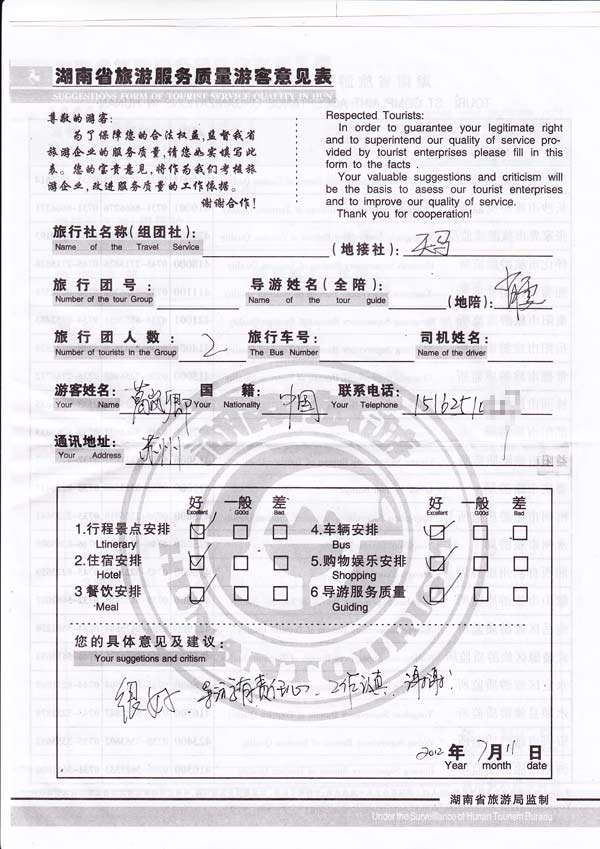 湖南省旅游服务质量游客意见表
SUGGESTIONS FORM OF TOURIST SERVICE QUALITY IN HUN
尊敬的游客:
为了保障您的合法权益,监督我省
旅游企业的服务质量,请您如实填写此
表。您的宝贵意见,将作为我们考核旅
游企业,改进服务质量的工作依据。
谢谢合作!
Respected Tourists:
In order to guarantee your legitimate right
and to superintend our quality of service pro-
vided by tourist enterprises please fill in this
form to the facts .
Your valuable suggestions and criticism will
be the basis to asess our tourist enterprises
and to improve our quality of service.
Thank you for cooperation!
旅行社名称(组团社): (地接社): 天马
Name of the Travel Service
旅行团号: 导游姓名(全陪): (地陪):
Number of the tour Group Name of the tour guide
旅行团人数: 2 旅行车号: 司机姓名:
Number of tourists in the Group The Bus Number Name of the driver
游客姓名: 国籍: 中国 联系电话: 1516251
Your Name Your Nationality Your Telephone
通讯地址: 苏州
Your Address
好 一般 差 好 一般 差
Excellent GOod Bad Excellent GOod Bad
1.行程景点安排 4.车辆安排
Ltinerary Bus
2.住宿安排 5.购物娱乐安排
Hotel Shopping
3 餐饮安排 6 导游服务质量
Meal Guiding
您的具体意见及建议:
Your suggetions and critism
很好、导游有责任心、工作认真、谢谢!
2012 年 7 月 11 日
Year month date
湖南省旅游局监制
Under the Surveillance of Hunan Tourism Bureau